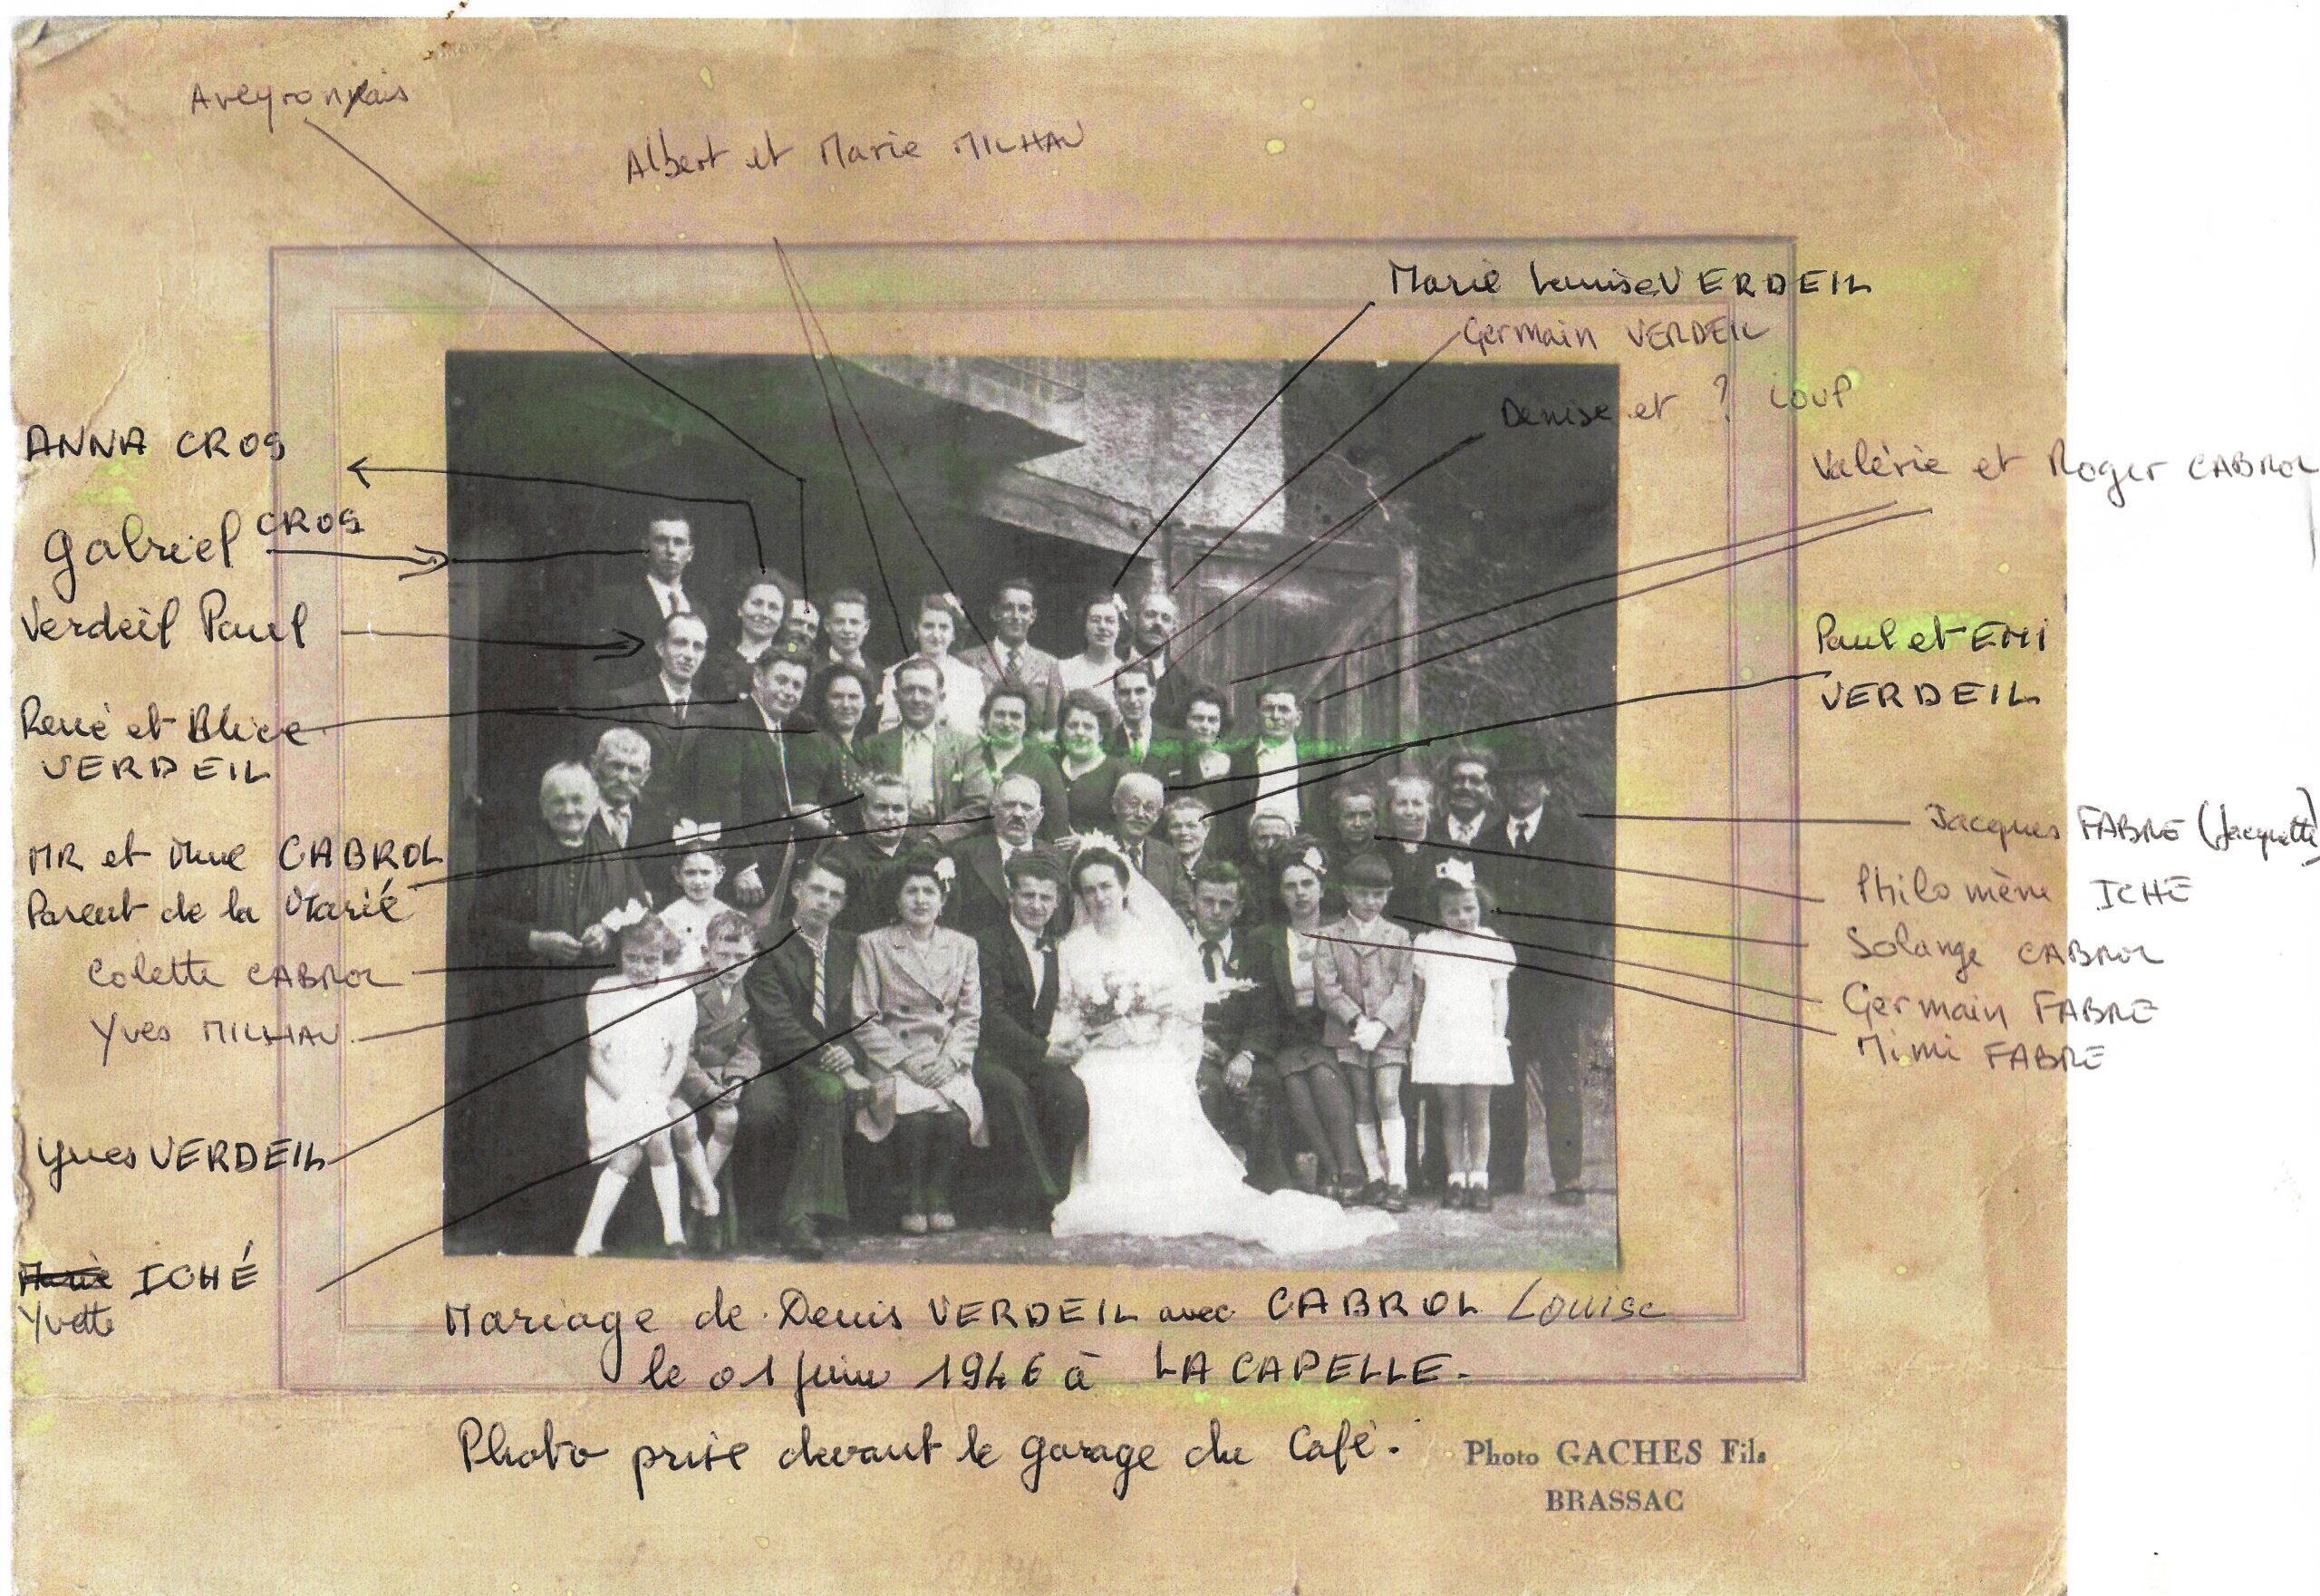 Aveyronnais
Albert et Marie MILHAU
Marie Louise VERDEIL
Germain VERDEIL
Denise et ? LOUP
Valérie et Roger CABROL
ANNA CROS
Gabriel CROS
Verdeil Paul
Paul et EMI
VERDEIL
René et Alice
VERDEIL
Jacques FABRE (Jacquette)
MR et Mme CABROL
Parent de la Marié
Philomène ICHÉ
Solange CABROL
Colette CABROL
Germain FABRE
Yves MILHAU
Mimi FABRE
Yves VERDEIL
Marie ICHÉ
Yvette
Mariage de Denis VERDEIL avec CABROL Louise
le 01 Juin 1946 à LACAPELLE.
Photo prise devant le garage du Café.
Photo GACHES Fils
BRASSAC